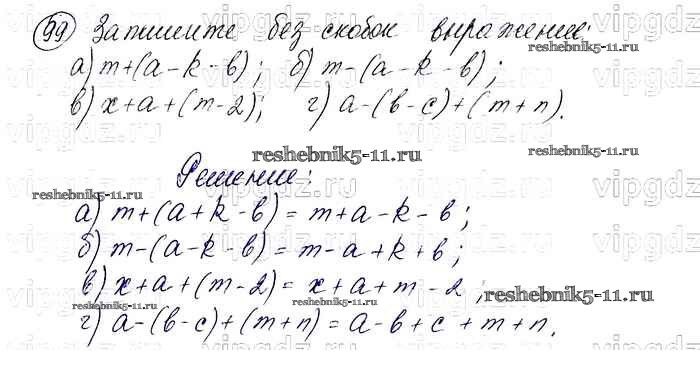 99 Запишите без скобок выражение:
а) m+(a-k-в); б) m-(a-k-в);
в) x+a+(m-2); г) a-(в-c)+(m+n).
Решение:
а) m+(a+k-в)=m+a-k-в;
б) m-(a-k-в)=m-a+k+в;
в) x+a+(m-2)=x+a+m-2;
г) a-(в-c)+(m+n)=a-в+c+m+n.
reshebnik5-11.ru
reshebnik5-11.ru
reshebnik5-11.ru
reshebnik5-11.ru
reshebnik5-11.ru
reshebnik5-11.ru
reshebnik5-11.ru
vipgdz